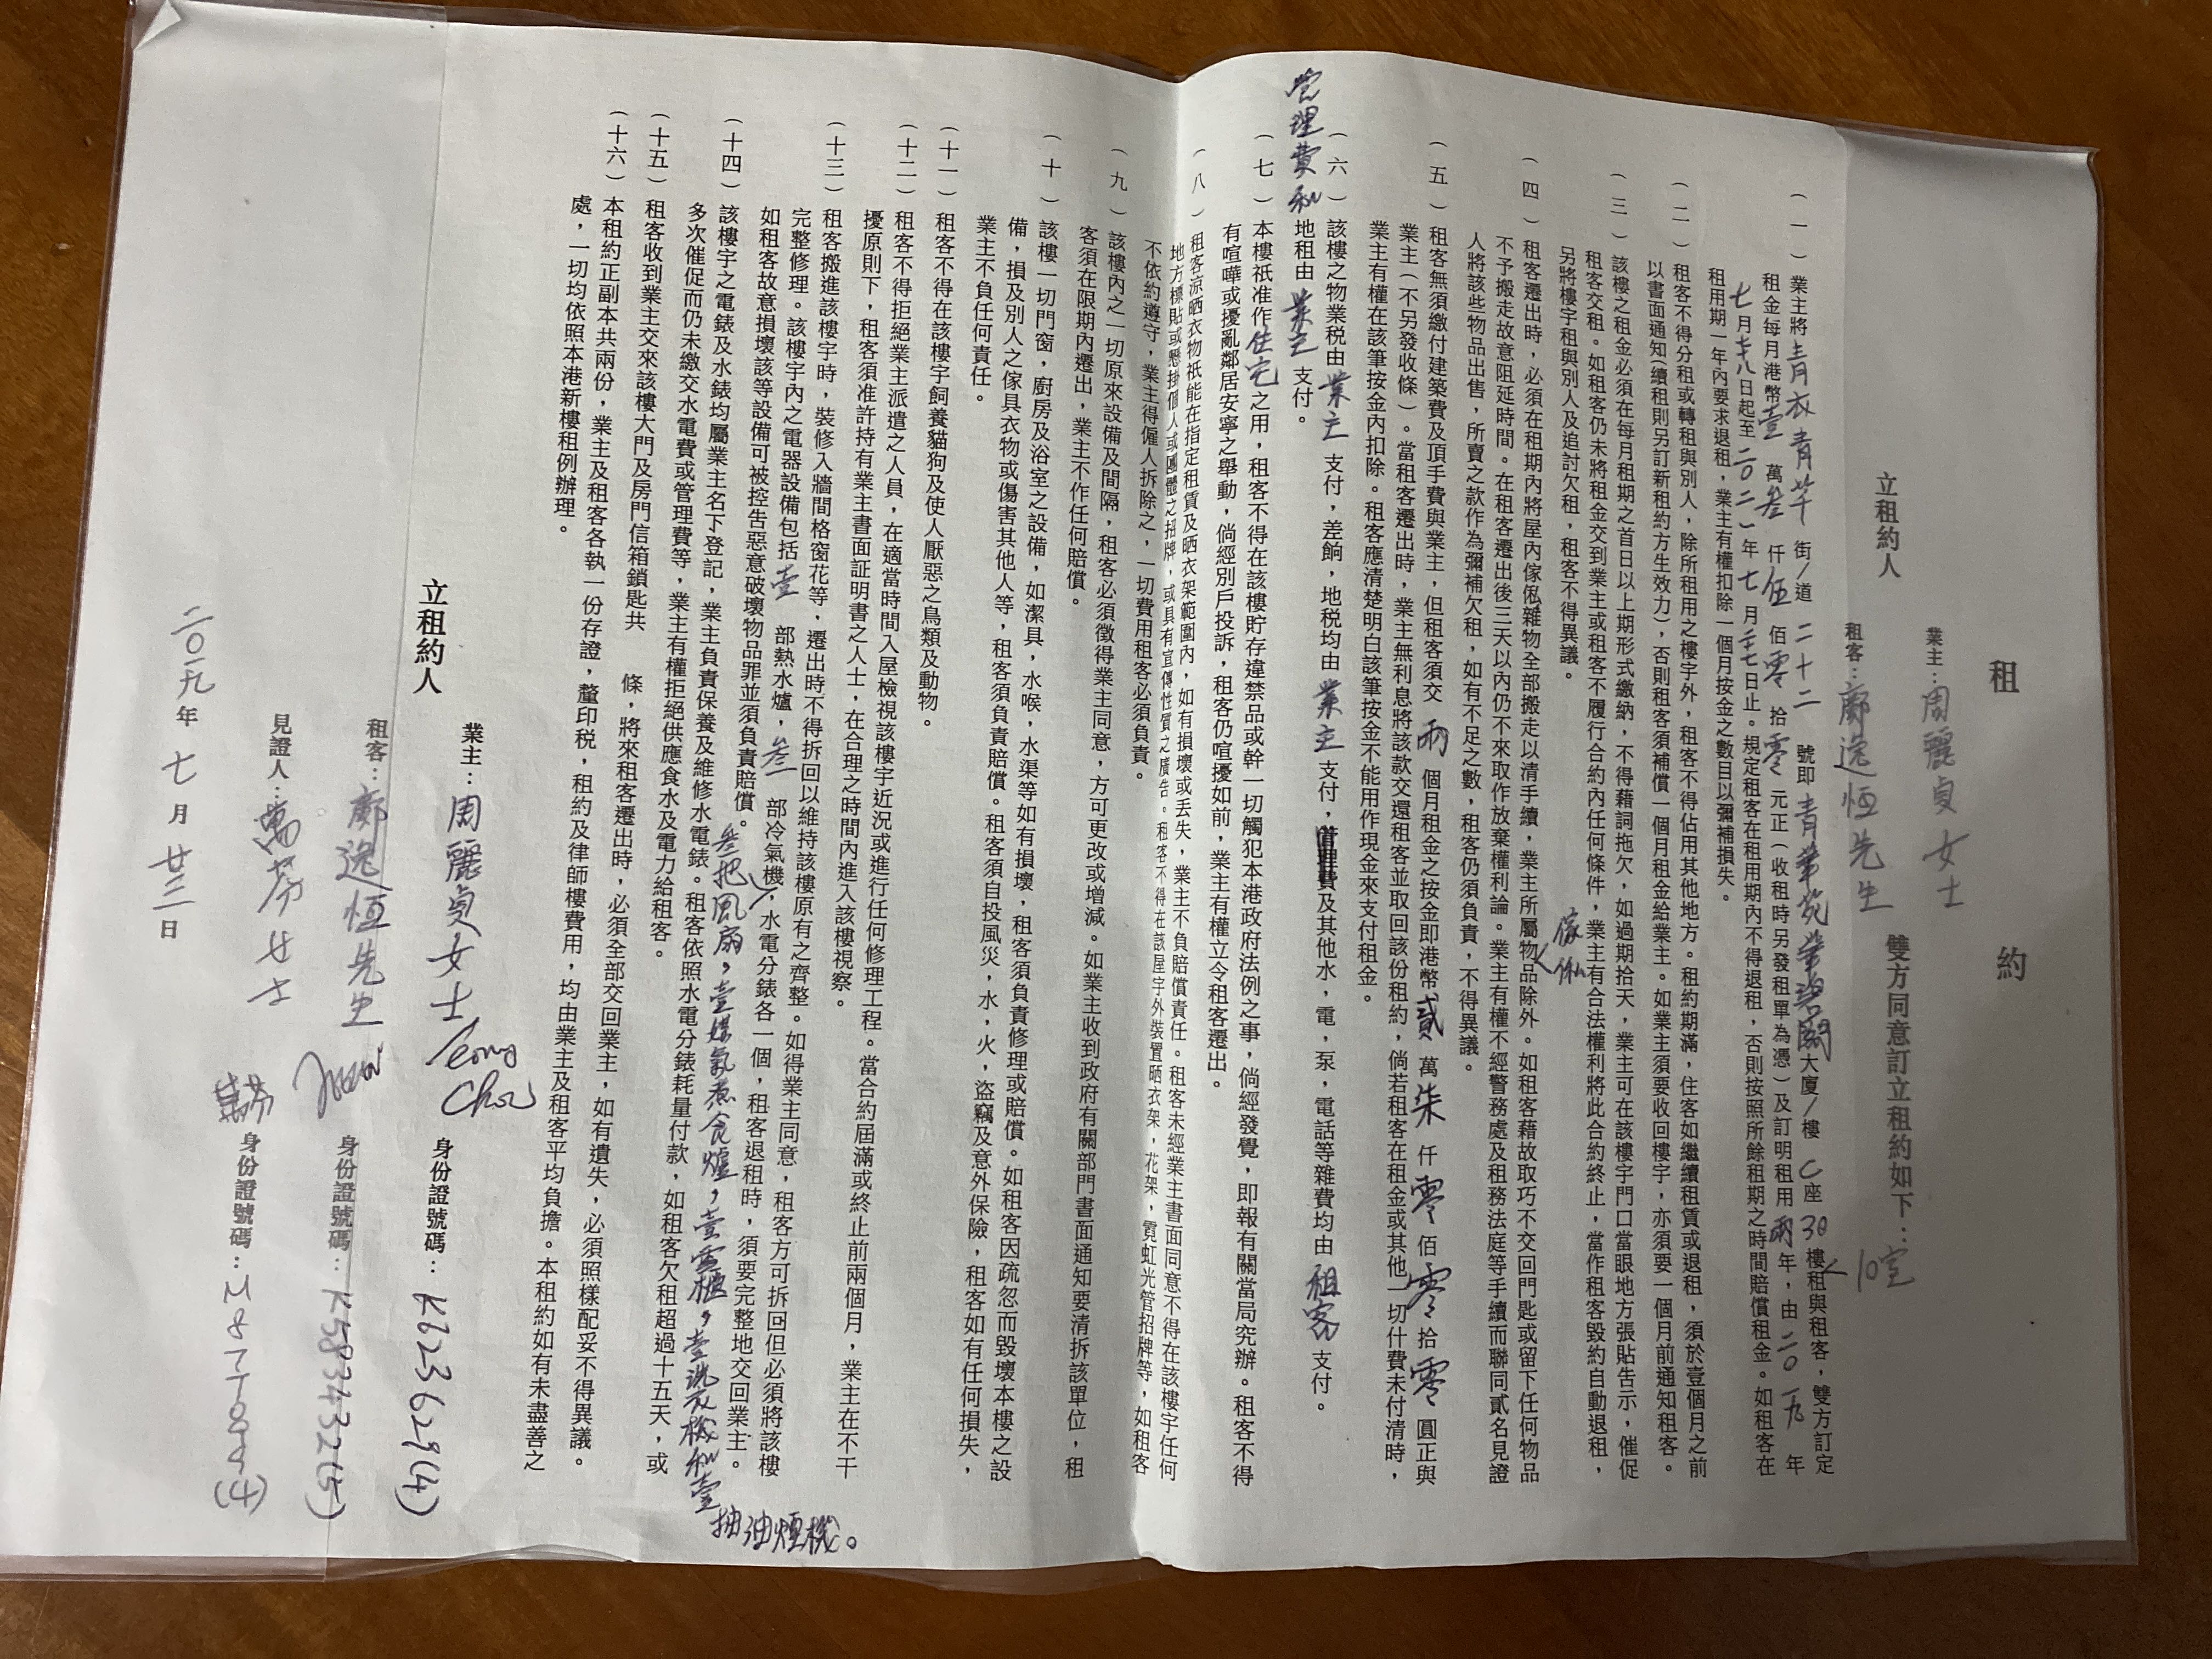 租約
業主：周麗貞女士
立租約人 雙方同意訂立租約如下：
租客：鄺逸恒先生 10室
（一）業主將青衣青芊街/道二十二號即青華苑華碧閣大廈/樓C座30樓租與租客，雙方訂定
租金每月港幣壹萬叁仟伍佰零拾零元正（收租時另發租單為憑）及訂明租用兩年，由二〇一九年
七月廿八日起至二〇二一年七月廿七日止。規定租客在租用期內不得退租，否則按照所餘租期之時間賠償租金。如租客在
租用期一年內要求退租，業主有權扣除一個月按金之數目以彌補損失。
（二）租客不得分租或轉租與別人，除所租用之樓宇外，租客不得佔用其他地方。租約期滿，住客如繼續租賃或退租，須於壹個月之前
以書面通知（續租則另訂新租約方生效力），否則租客須補償一個月租金給業主。如業主須要收回樓宇，亦須要一個月前通知租客。
（三）該樓之租金必須在每月租期之首日以上期形式繳納，不得藉詞拖欠，如過期拾天，業主可在該樓宇門口當眼地方張貼告示，催促
租客交租。如租客仍未將租金交到業主或租客不履行合約內任何條件，業主有合法權利將此合約終止，當作租客毀約自動退租，
另將樓宇租與別人及追討欠租，租客不得異議。
傢俬
（四）租客遷出時，必須在租期內將屋內傢俬雜物全部搬走以清手續，業主所屬物品除外。如租客藉故取巧不交回門匙或留下任何物品
不予搬走故意阻延時間。在租客遷出後三天以內仍不來取作放棄權利論。業主有權不經警務處及租務法庭等手續而聯同貳名見證
人將該些物品出售，所賣之款作為彌補欠租，如有不足之數，租客仍須負責，不得異議。
（五）租客無須繳付建築費及頂手費與業主，但租客須交兩個月租金之按金即港幣貳萬柒仟零佰零拾零圓正與
業主（不另發收條）。當租客遷出時，業主無利息將該款交還租客並取回該份租約，倘若租客在租金或其他一切什費未付清時，
業主有權在該筆按金內扣除。租客應清楚明白該筆按金不能用作現金來支付租金。
（六）該樓之物業稅由業主支付，差餉，地稅均由業主支付，管理費及其他水，電，泵，電話等雜費均由租客支付。
管理費和地租由業主支付。
（七）本樓衹准作住宅之用，租客不得在該樓貯存違禁品或幹一切觸犯本港政府法例之事，倘經發覺，即報有關當局究辦。租客不得
有喧嘩或擾亂鄰居安寧之舉動，倘經別戶投訴，租客仍喧擾如前，業主有權立令租客遷出。
（八）租客涼晒衣物衹能在指定租賃及晒衣架範圍內，如有損壞或丟失，業主不負賠償責任。租客未經業主書面同意不得在該樓宇任何
地方標貼或懸掛個人或團體之招牌，或具有宣傳性質之廣告。租客不得在該屋宇外裝置晒衣架，花架，霓虹光管招牌等，如租客
不依約遵守，業主得僱人拆除之，一切費用租客必須負責。
（九）該樓內之一切原來設備及間隔，租客必須徵得業主同意，方可更改或增減。如業主收到政府有關部門書面通知要清拆該單位，租
客須在限期內遷出，業主不作任何賠償。
（十）該樓一切門窗，廚房及浴室之設備，如潔具，水喉，水渠等如有損壞，租客須負責修理或賠償。如租客因疏忽而毀壞本樓之設
備，損及別人之傢具衣物或傷害其他人等，租客須負責賠償。租客須自投風災，水，火，盜竊及意外保險，租客如有任何損失，
業主不負任何責任。
（十一）租客不得在該樓宇飼養貓狗及使人厭惡之鳥類及動物。
（十二）租客不得拒絕業主派遣之人員，在適當時間入屋檢視該樓宇近況或進行任何修理工程。當合約屆滿或終止前兩個月，業主在不干
擾原則下，租客須准許持有業主書面証明書之人士，在合理之時間內進入該樓視察。
（十三）租客搬進該樓宇時，裝修入牆間格窗花等，遷出時不得拆回以維持該樓原有之齊整。如得業主同意，租客方可拆回但必須將該樓
完整修理。該樓宇內之電器設備包括壹部熱水爐，叁部冷氣機，水電分錶各一個，租客退租時，須要完整地交回業主。
如租客故意損壞該等設備可被控告惡意破壞物品罪並須負責賠償。
叁把風扇，壹煤氣煮食爐，壹雪櫃，壹洗衣機和壹抽油煙機。
（十四）該樓宇之電錶及水錶均屬業主名下登記，業主負責保養及維修水電錶。租客依照水電分錶耗量付款，如租客欠租超過十五天，或
多次催促而仍未繳交水電費或管理費等，業主有權拒絕供應食水及電力給租客。
（十五）租客收到業主交來該樓大門及房門信箱鎖匙共 條，將來租客遷出時，必須全部交回業主，如有遺失，必須照樣配妥不得異議。
（十六）本租約正副本共兩份，業主及租客各執一份存證，釐印稅，租約及律師樓費用，均由業主及租客平均負擔。本租約如有未盡善之
處，一切均依照本港新樓租例辦理。
業主：周麗貞女士 身份證號碼：K623629(4)
立租約人
租客：鄺逸恒先生 身份證號碼：K583432(5)
見證人：萬芬女士 身份證號碼：
二〇一九年七月廿三日